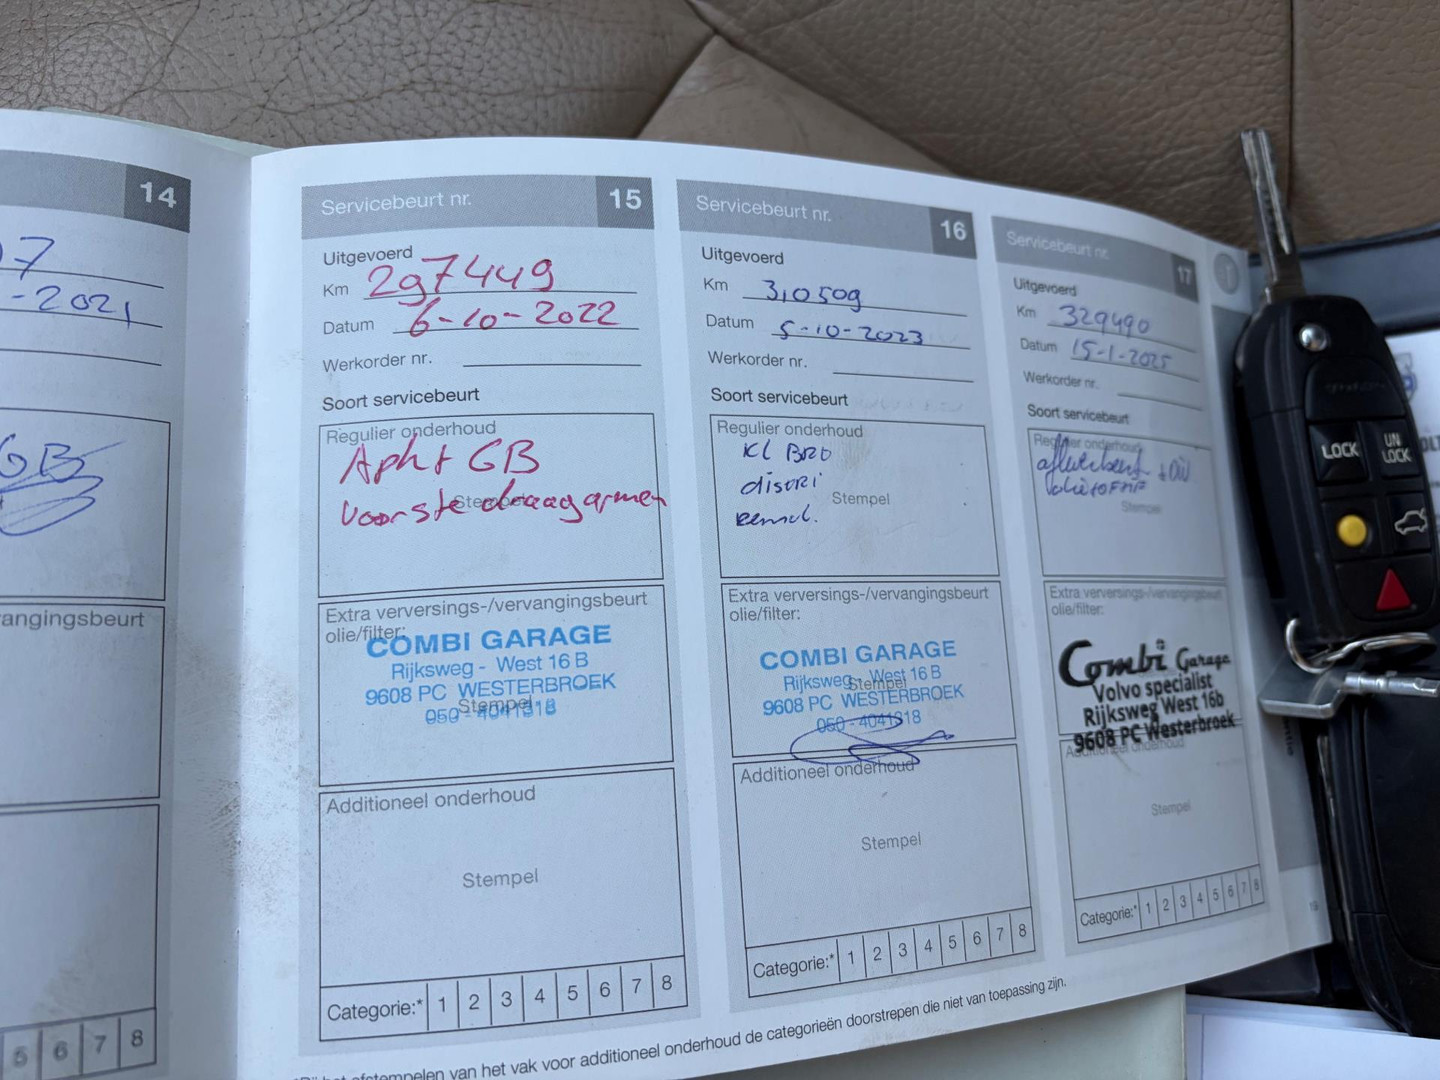 14
07
-2021
GB
angingsbeurt
5 6 7 8
Servicebeurt nr. 15
Uitgevoerd
Km 297449
Datum 6-10-2022
Werkorder nr.
Soort servicebeurt
Regulier onderhoud
Apk + GB
Stempel
voorste draagarmen
Extra verversings-/vervangingsbeurt
olie/filter:
COMBI GARAGE
Rijksweg - West 16 B
9608 PC WESTERBROEK
Stempel
050 - 4041318
Additioneel onderhoud
Stempel
Categorie:* 1 2 3 4 5 6 7 8
Servicebeurt nr. 16
Uitgevoerd
Km 310509
Datum 5-10-2023
Werkorder nr.
Soort servicebeurt
Regulier onderhoud
Kl BRT
distri
Stempel
Extra verversings-/vervangingsbeurt
olie/filter:
COMBI GARAGE
Rijksweg - West 16 B
Stempel
9608 PC WESTERBROEK
050 - 4041318
Additioneel onderhoud
Stempel
Categorie:* 1 2 3 4 5 6 7 8
Servicebeurt nr. 17
Uitgevoerd
Km 329490
Datum 15-1-2025
Werkorder nr.
Soort servicebeurt
Regulier onderhoud
Stempel
Extra verversings-/vervangingsbeurt
olie/filter:
Combi Garage
Volvo specialist
Rijksweg West 16b
9608 PC Westerbroek
Additioneel onderhoud
Stempel
Categorie:* 1 2 3 4 5 6 7 8
afstempelen van het vak voor additioneel onderhoud de categorieën doorstrepen die niet van toepassing zijn.
19
LOCK
UN
LOCK